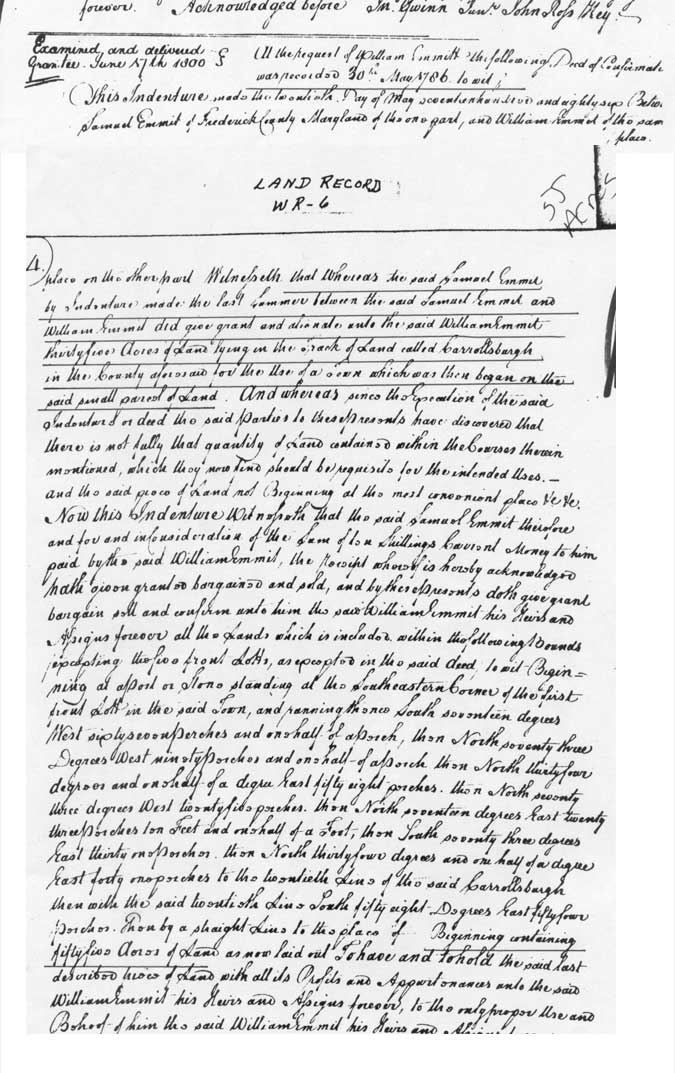 forever. Acknowledged before Jn. Gwinn Junr. John Ross Key.
Examined and delivered
Grantee June 17th 1800
At the request of William Emmitt the following Deed of Confirmati
was recorded 30th May 1786. to wit;
This Indenture made the twentieth Day of May seventeen hundred and eighty six Betw
Samuel Emmit of Frederick County Maryland of the one part, and William Emmet of the sam
place.
LAND RECORD
WR-6
55
Acres
4.
place on the other part Witnesseth that Whereas the said Samuel Emmit
by Indenture made the last Summer between the said Samuel Emmet and
William Emmit did give grant and alienate unto the said William Emmit
thirty five Acres of Land lying in the Track of Land called Carrollsburgh
in the County aforesaid for the Use of a Town which was then began on the
said small parcel of Land. And whereas since the Execution of the said
Indenture or deed the said Parties to these Presents have discovered that
there is not fully that quantity of Land contained within the Courses therein
mentioned, which they now find should be requisite for the intended Uses. —
and the said piece of Land not Beginning at the most convenient place &c &c.
Now this Indenture Witnesseth that the said Samuel Emmit therefore
and for and in Consideration of the Sum of ten Shillings Current Money to him
paid by the said William Emmit, the Receipt whereof is hereby acknowledged
hath given granted bargained and sold, and by these Presents doth give grant
bargain sell and confirm unto him the said William Emmit his Heirs and
Assigns forever all the Lands which is included within the following Bounds
excepting the five front Lotts, as excepted in the said deed, to wit Begin=
ning at a post or Stone standing at the Southeastern Corner of the first
front Lott in the said Town, and running thence South seventeen degrees
West sixty seven perches and one half of a perch, then North seventy three
Degrees West ninety perches and one half of a perch then North thirty four
degrees and one half of a degree East fifty eight perches. then North seventy
three degrees West twenty five perches. then North seventeen degrees East twenty
three Perches ten Feet and one half of a Foot, then South seventy three degrees
East thirty one perches. then North thirty four degrees and one half of a degree
East forty one perches to the twentieth Line of the said Carrollsburgh
then with the said twentieth Line South fifty eight Degrees East fifty four
perches. Then by a straight Line to the place of Beginning containing
fifty five Acres of Land as now laid out To have and to hold the said last
described piece of Land with all its Profits and Appurtenances unto the said
William Emmit his Heirs and Assigns forever, to the only proper Use and
Behoof of him the said William Emmit his Heirs and Assigns